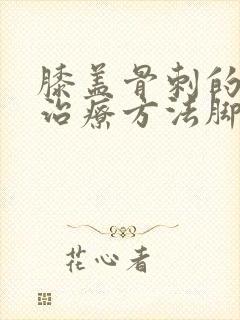 膝盖骨刺的
治疗方法脚
花心者